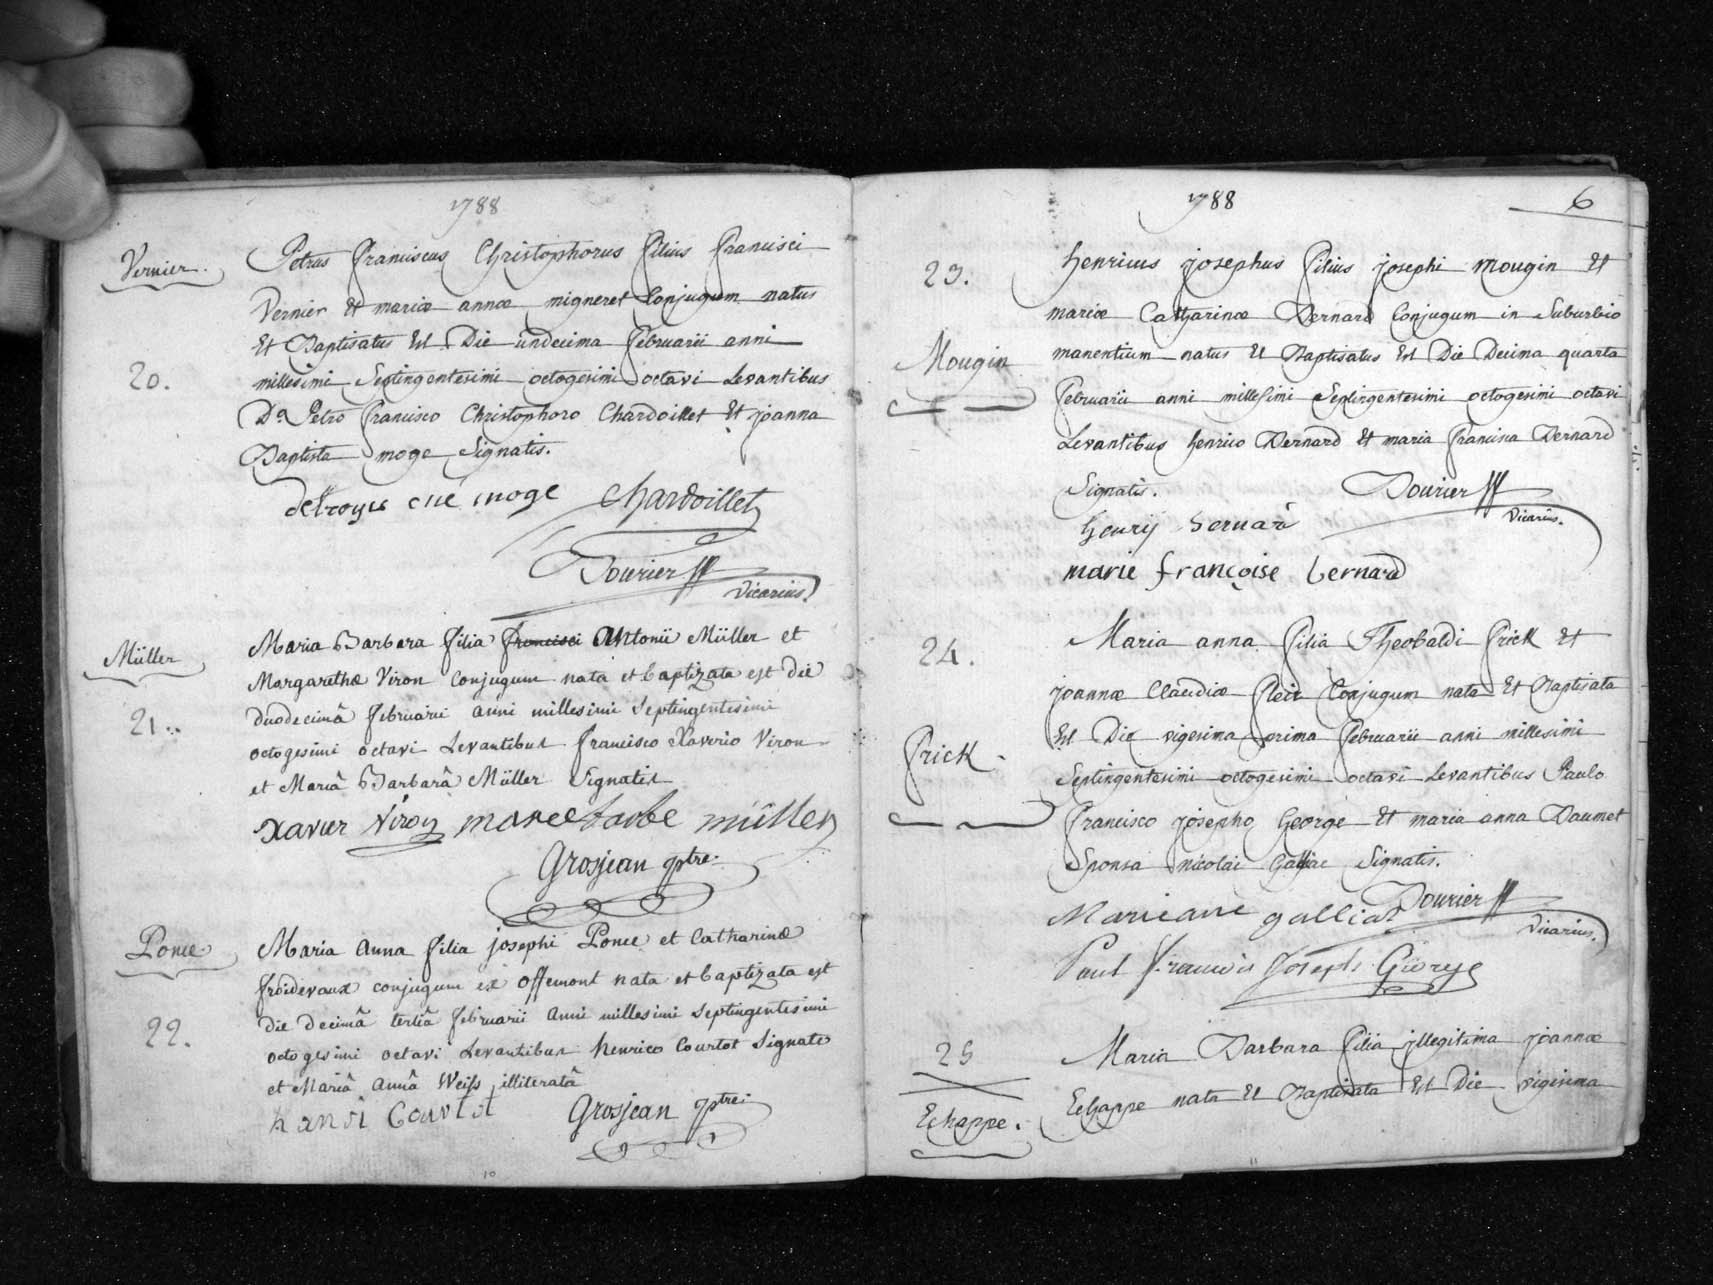 1788
Vernier.
20.
Petrus franciscus Christophorus filius francisci
Vernier et mariæ annæ migneret Conjugum natus
Et Baptisatus Est Die undecima februarii anni
millesimi Septingentesimi octogesimi octavi Levantibus
D.º Petro francisco Christophoro Chardoillet Et joanna
Baptista moge Signatis.
detroyes née moge Chardoillet
Bourier
Vicarius.
Müller
21..
Maria Barbara filia francisci Antonii Müller et
Margarethæ Viron conjugum nata et baptizata est die
duodecimâ februarii anni millesimi Septingentesimi
octogesimi octavi Levantibus francisco Xaverio Viron
et Mariâ Barbarâ Müller Signatis
Xavier Viron barbe müller
Grosjean ptre.
Ponce
22.
Maria Anna filia josephi Ponce et Catharinæ
froidevaux conjugum ex Offemont nata et baptizata est
die decimâ tertiâ februarii anni millesimi Septingentesimi
octogesimi octavi Levantibus henrico Courtot Signato
et Mariâ Annâ Weiss illiteratâ
hanri Courtot Grosjean ptre.
10
1788
6
23.
Mougin
henricus josephus filius josephi Mougin Et
mariæ Catharinæ Bernard Conjugum in Suburbio
manentium natus Et Baptisatus Est Die Decima quarta
februarii anni millesimi Septingentesimi octogesimi octavi
Levantibus henrico Bernard Et maria francisca Bernard
Signatis. Bourier
Vicarius.
henry bernard
marie françoise bernard
24.
frick.
Maria anna filia Theobaldi frick Et
joannæ Claudiæ Conjugum nata Et Baptisata
Est Die vigesima prima februarii anni millesimi
Septingentesimi octogesimi octavi Levantibus Paulo
francisco josepho George Et maria anna Daumet
Sponsa nicolai Signatis.
Mariane galliat Bourier
Vicarius.
Paul françois Joseph George
25
Echappe.
Maria Barbara filia illegitima joannæ
Echappe nata Et Baptisata Est Die vigesima
11